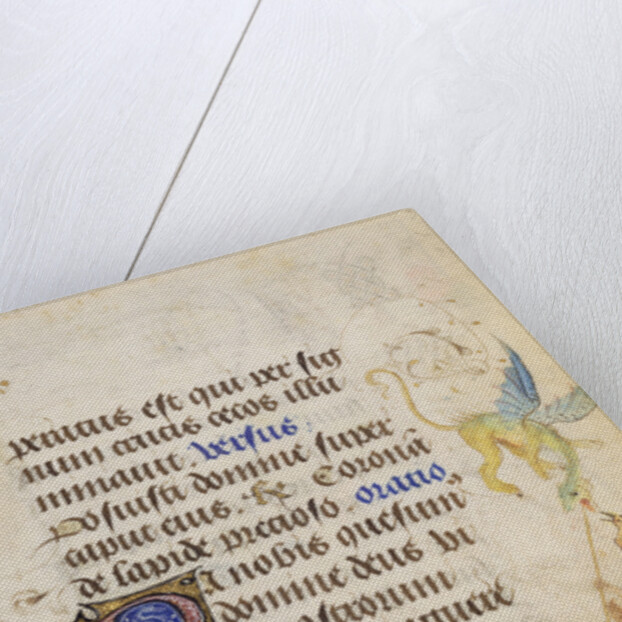 peritus est qui per sig
num crucis cecos illu
minauit. versus
Posuisti domine super
caput eius. R Coronam
de lapide precioso. oratio
Da nobis quesumus
domine deus